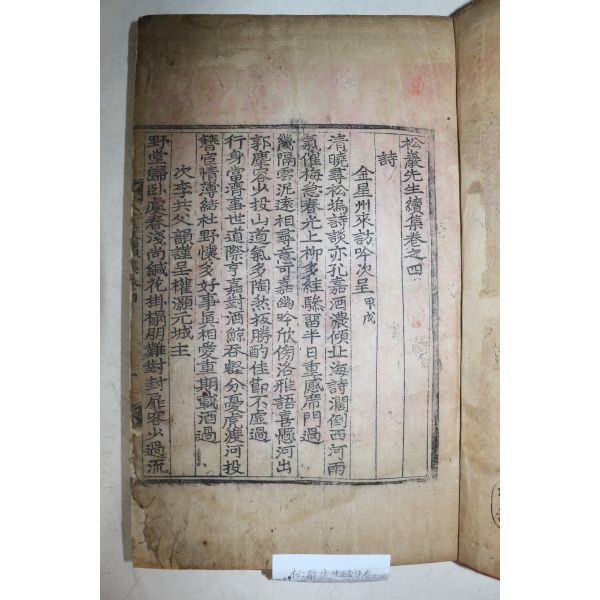 松巖先生續集卷之四
詩
金星州來訪吟次呈 甲戌
清曉尋松塢詩談亦孔嘉酒濃傾北海詩濶倒西河雨
氣催梅意春光上柳多維驂留半日重感席門過
幾隔雲泥遠相尋意可嘉幽吟欣傍洛雅語喜懸河出
郭塵容少投山道氣多陶然拔勝酌佳節不虛過
行身當濟事世道際亨嘉對酒鯨吞壑分憂虎渡河投
簪宦情薄結社野懷多好事眞相愛重期載酒過
次李共父韻謹呈權灝元城主
野堂歸臥處春淺尚緘花掛榻朋難對封扉客少過流